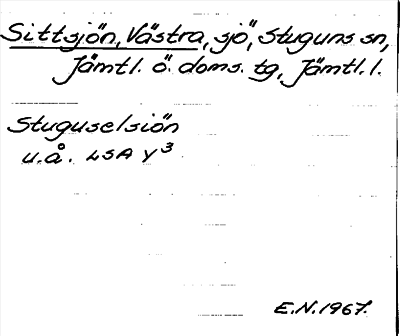 Sittsjön, Västra, sjö, Stuguns sn,
Jämtl. ö. doms. tg, Jämtl. l.
Stuguselsiön
u.å. LSA Y³
E.N. 1967.